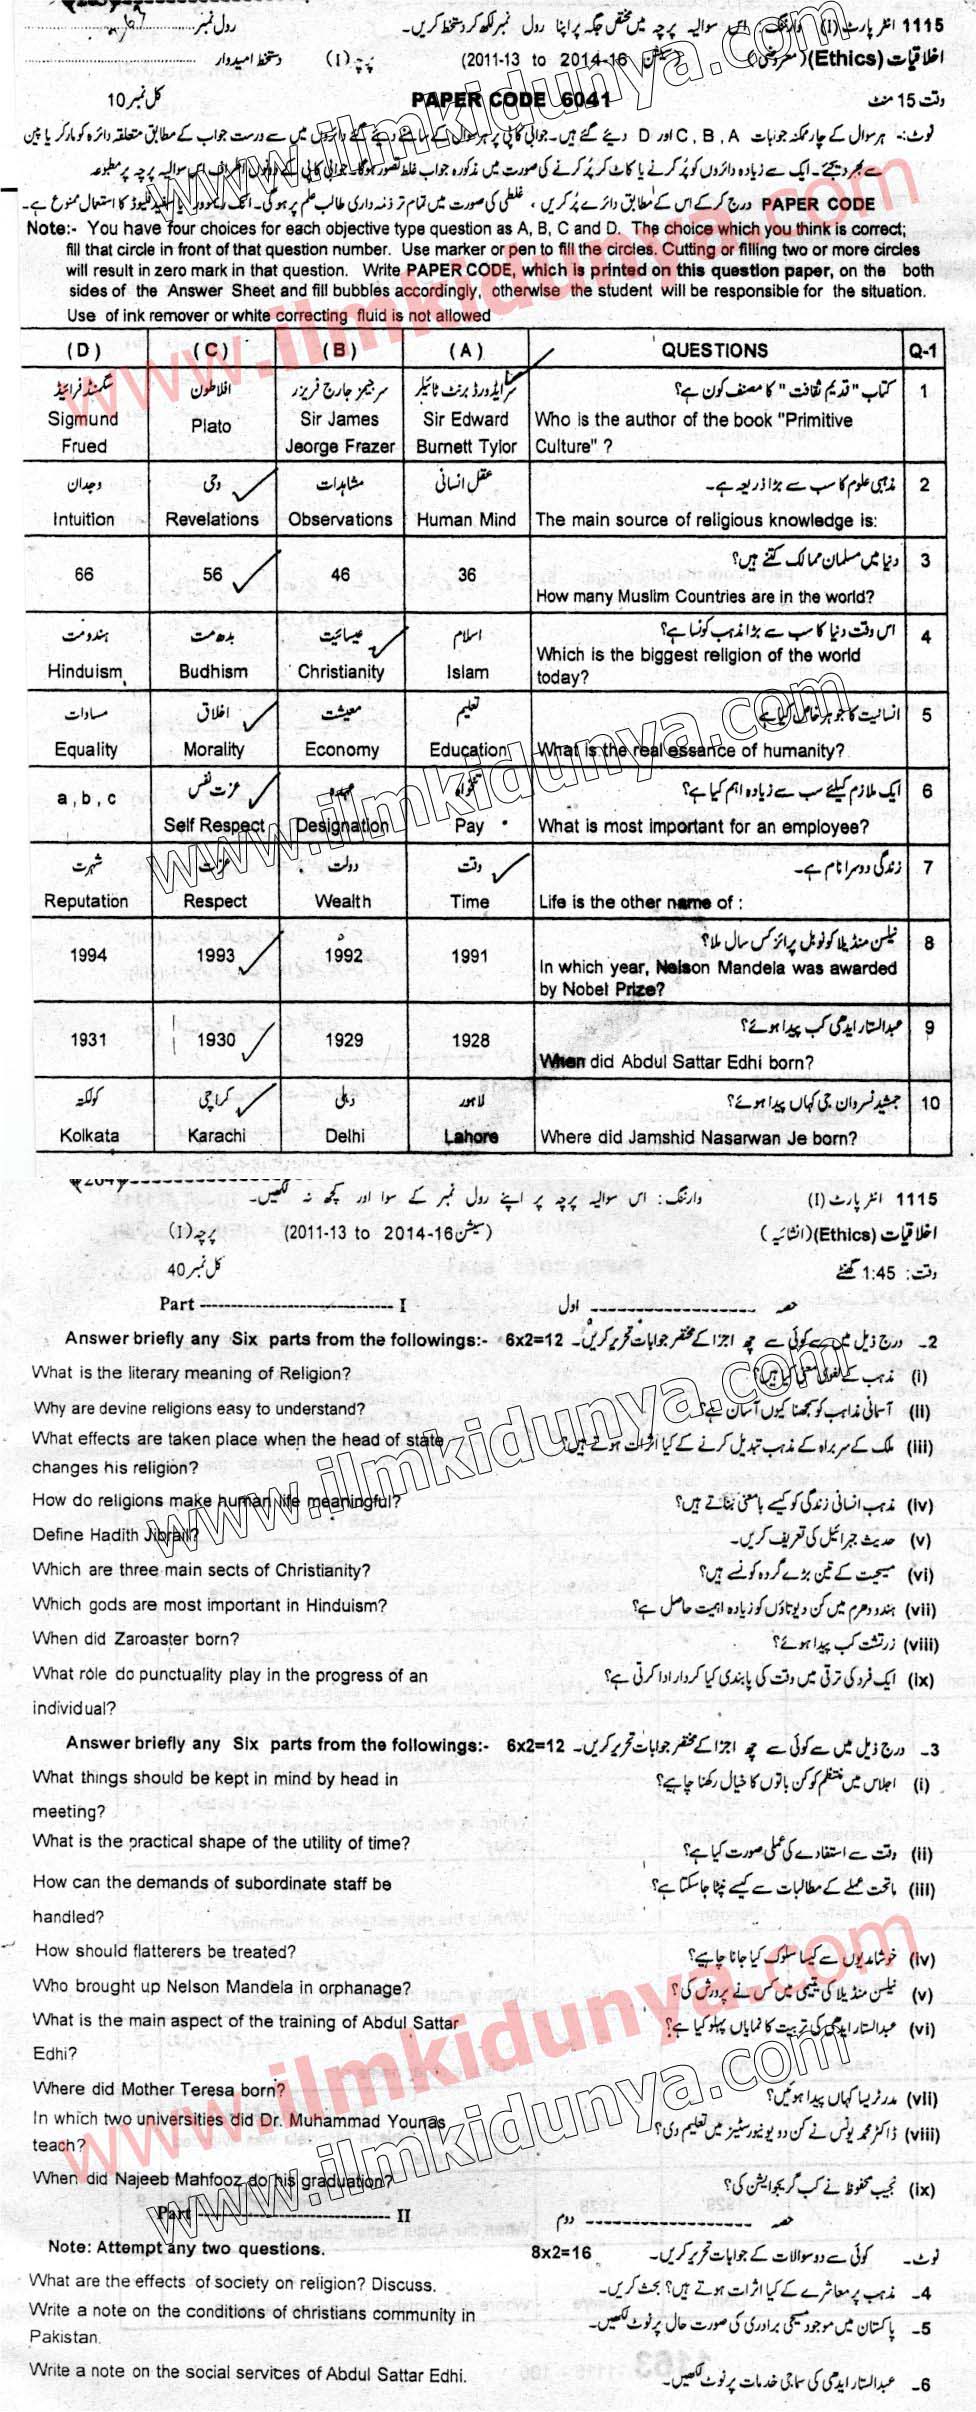 1115 انٹر پارٹ (I) وارننگ: اس سوالیہ پرچہ میں مختص جگہ پر اپنا رول نمبر لکھ کر دستخط کریں۔ رول نمبر
اخلاقیات (Ethics) (معروضی) (سیشن 2011-13 to 2014-16) پرچہ (I) دستخط امیدوار
وقت 15 منٹ PAPER CODE 6041 کل نمبر 10
نوٹ:- ہر سوال کے چار ممکنہ جوابات C, B, A اور D دیئے گئے ہیں۔ جوابی کاپی پر ہر سوال کے سامنے دیئے گئے دائروں میں سے درست جواب کے مطابق متعلقہ دائرہ کو مارکر یا پین
سے بھر دیجئے۔ ایک سے زیادہ دائروں کو پُر کرنے یا کاٹ کر پُر کرنے کی صورت میں مذکورہ جواب غلط تصور ہوگا۔ جوابی کاپی کے دونوں اطراف اس سوالیہ پرچہ پر مطبوعہ
PAPER CODE درج کر کے اس کے مطابق دائرے پُر کریں، غلطی کی صورت میں تمام تر ذمہ داری طالب علم پر ہوگی۔ انک ریموور یا سفید فلیوڈ کا استعمال ممنوع ہے۔
Note:- You have four choices for each objective type question as A, B, C and D. The choice which you think is correct;
fill that circle in front of that question number. Use marker or pen to fill the circles. Cutting or filling two or more circles
will result in zero mark in that question. Write PAPER CODE, which is printed on this question paper, on the both
sides of the Answer Sheet and fill bubbles accordingly, otherwise the student will be responsible for the situation.
Use of ink remover or white correcting fluid is not allowed
(D) (C) (B) (A) QUESTIONS Q-1
سگمنڈ فرائیڈ افلاطون سر جیمز جارج فریزر سر ایڈورڈ برنٹ ٹائیلر کتاب "قدیم ثقافت" کا مصنف کون ہے؟ 1
Sigmund Plato Sir James Sir Edward Who is the author of the book "Primitive
Frued Jeorge Frazer Burnett Tylor Culture" ?
وجدان وحی مشاہدات عقل انسانی مذہبی علوم کا سب سے بڑا ذریعہ ہے۔ 2
Intuition Revelations Observations Human Mind The main source of religious knowledge is:
66 56 46 36 دنیا میں مسلمان ممالک کتنے ہیں؟ 3
How many Muslim Countries are in the world?
ہندومت بدھ مت عیسائیت اسلام اس وقت دنیا کا سب سے بڑا مذہب کونسا ہے؟ 4
Hinduism Budhism Christianity Islam Which is the biggest religion of the world
today?
مساوات اخلاق معیشت تعلیم انسانیت کا جوہر خاص کیا ہے 5
Equality Morality Economy Education What is the real essance of humanity?
a, b, c عزت نفس عہدہ تنخواہ ایک ملازم کیلئے سب سے زیادہ اہم کیا ہے؟ 6
Self Respect Designation Pay What is most important for an employee?
شہرت عزت دولت وقت زندگی دوسرا نام ہے۔ 7
Reputation Respect Wealth Time Life is the other name of :
1994 1993 1992 1991 نیلسن منڈیلا کو نوبل پرائز کس سال ملا؟ 8
In which year, Nelson Mandela was awarded
by Nobel Prize?
1931 1930 1929 1928 عبدالستار ایدھی کب پیدا ہوئے؟ 9
When did Abdul Sattar Edhi born?
کولکتہ کراچی دہلی لاہور جمشید نسروان جی کہاں پیدا ہوئے؟ 10
Kolkata Karachi Delhi Lahore Where did Jamshid Nasarwan Je born?
1115 انٹر پارٹ (I) وارننگ: اس سوالیہ پرچہ پر اپنے رول نمبر کے سوا اور کچھ نہ لکھیں۔
اخلاقیات (Ethics) (انشائیہ) (سیشن 2011-13 to 2014-16) پرچہ (I)
وقت: 1:45 گھنٹے کل نمبر 40
Part ---------- I حصہ ---------- اول
Answer briefly any Six parts from the followings:- 6x2=12 2۔ درج ذیل میں سے کوئی سے چھ اجزا کے مختصر جوابات تحریر کریں۔
What is the literary meaning of Religion? (i) مذہب کے لغوی معنی کیا ہیں؟
Why are devine religions easy to understand? (ii) آسمانی مذاہب کو سمجھنا کیوں آسان ہے؟
What effects are taken place when the head of state (iii) ملک کے سربراہ کے مذہب تبدیل کرنے کے کیا اثرات ہوتے ہیں؟
changes his religion?
How do religions make human life meaningful? (iv) مذہب انسانی زندگی کو کیسے بامعنی بناتے ہیں؟
Define Hadith Jibrail? (v) حدیث جبرائیل کی تعریف کریں۔
Which are three main sects of Christianity? (vi) مسیحیت کے تین بڑے گروہ کونسے ہیں؟
Which gods are most important in Hinduism? (vii) ہندو دھرم میں کن دیوتاؤں کو زیادہ اہمیت حاصل ہے؟
When did Zaroaster born? (viii) زرتشت کب پیدا ہوئے؟
What role do punctuality play in the progress of an (ix) ایک فرد کی ترقی میں وقت کی پابندی کیا کردار ادا کرتی ہے؟
individual?
Answer briefly any Six parts from the followings:- 6x2=12 3۔ درج ذیل میں سے کوئی سے چھ اجزا کے مختصر جوابات تحریر کریں۔
What things should be kept in mind by head in (i) اجلاس میں منتظم کو کن باتوں کا خیال رکھنا چاہیے؟
meeting?
What is the practical shape of the utility of time? (ii) وقت سے استفادے کی عملی صورت کیا ہے؟
How can the demands of subordinate staff be (iii) ماتحت عملے کے مطالبات سے کیسے نپٹا جاسکتا ہے؟
handled?
How should flatterers be treated? (iv) خوشامدیوں سے کیسا سلوک کیا جانا چاہیے؟
Who brought up Nelson Mandela in orphanage? (v) نیلسن منڈیلا کی یتیمی میں کس نے پرورش کی؟
What is the main aspect of the training of Abdul Sattar (vi) عبدالستار ایدھی کی تربیت کا نمایاں پہلو کیا ہے؟
Edhi?
Where did Mother Teresa born? (vii) مدر ٹریسا کہاں پیدا ہوئیں؟
In which two universities did Dr. Muhammad Younas (viii) ڈاکٹر محمد یونس نے کن دو یونیورسٹیز میں تعلیم دی؟
teach?
When did Najeeb Mahfooz do his graduation? (ix) نجیب محفوظ نے کب گریجوایشن کی؟
Part ---------- II حصہ ---------- دوم
Note: Attempt any two questions. 8x2=16 نوٹ۔ کوئی سے دو سوالات کے جوابات تحریر کریں۔
What are the effects of society on religion? Discuss. 4۔ مذہب پر معاشرے کے کیا اثرات ہوتے ہیں؟ بحث کریں۔
Write a note on the conditions of christians community in 5۔ پاکستان میں موجود مسیحی برادری کی صورت حال پر نوٹ لکھیں۔
Pakistan.
Write a note on the social services of Abdul Sattar Edhi. 6۔ عبدالستار ایدھی کی سماجی خدمات پر نوٹ لکھیں۔
www.ilmkidunya.com
www.ilmkidunya.com
www.ilmkidunya.com
www.ilmkidunya.com
www.ilmkidunya.com
www.ilmkidunya.com